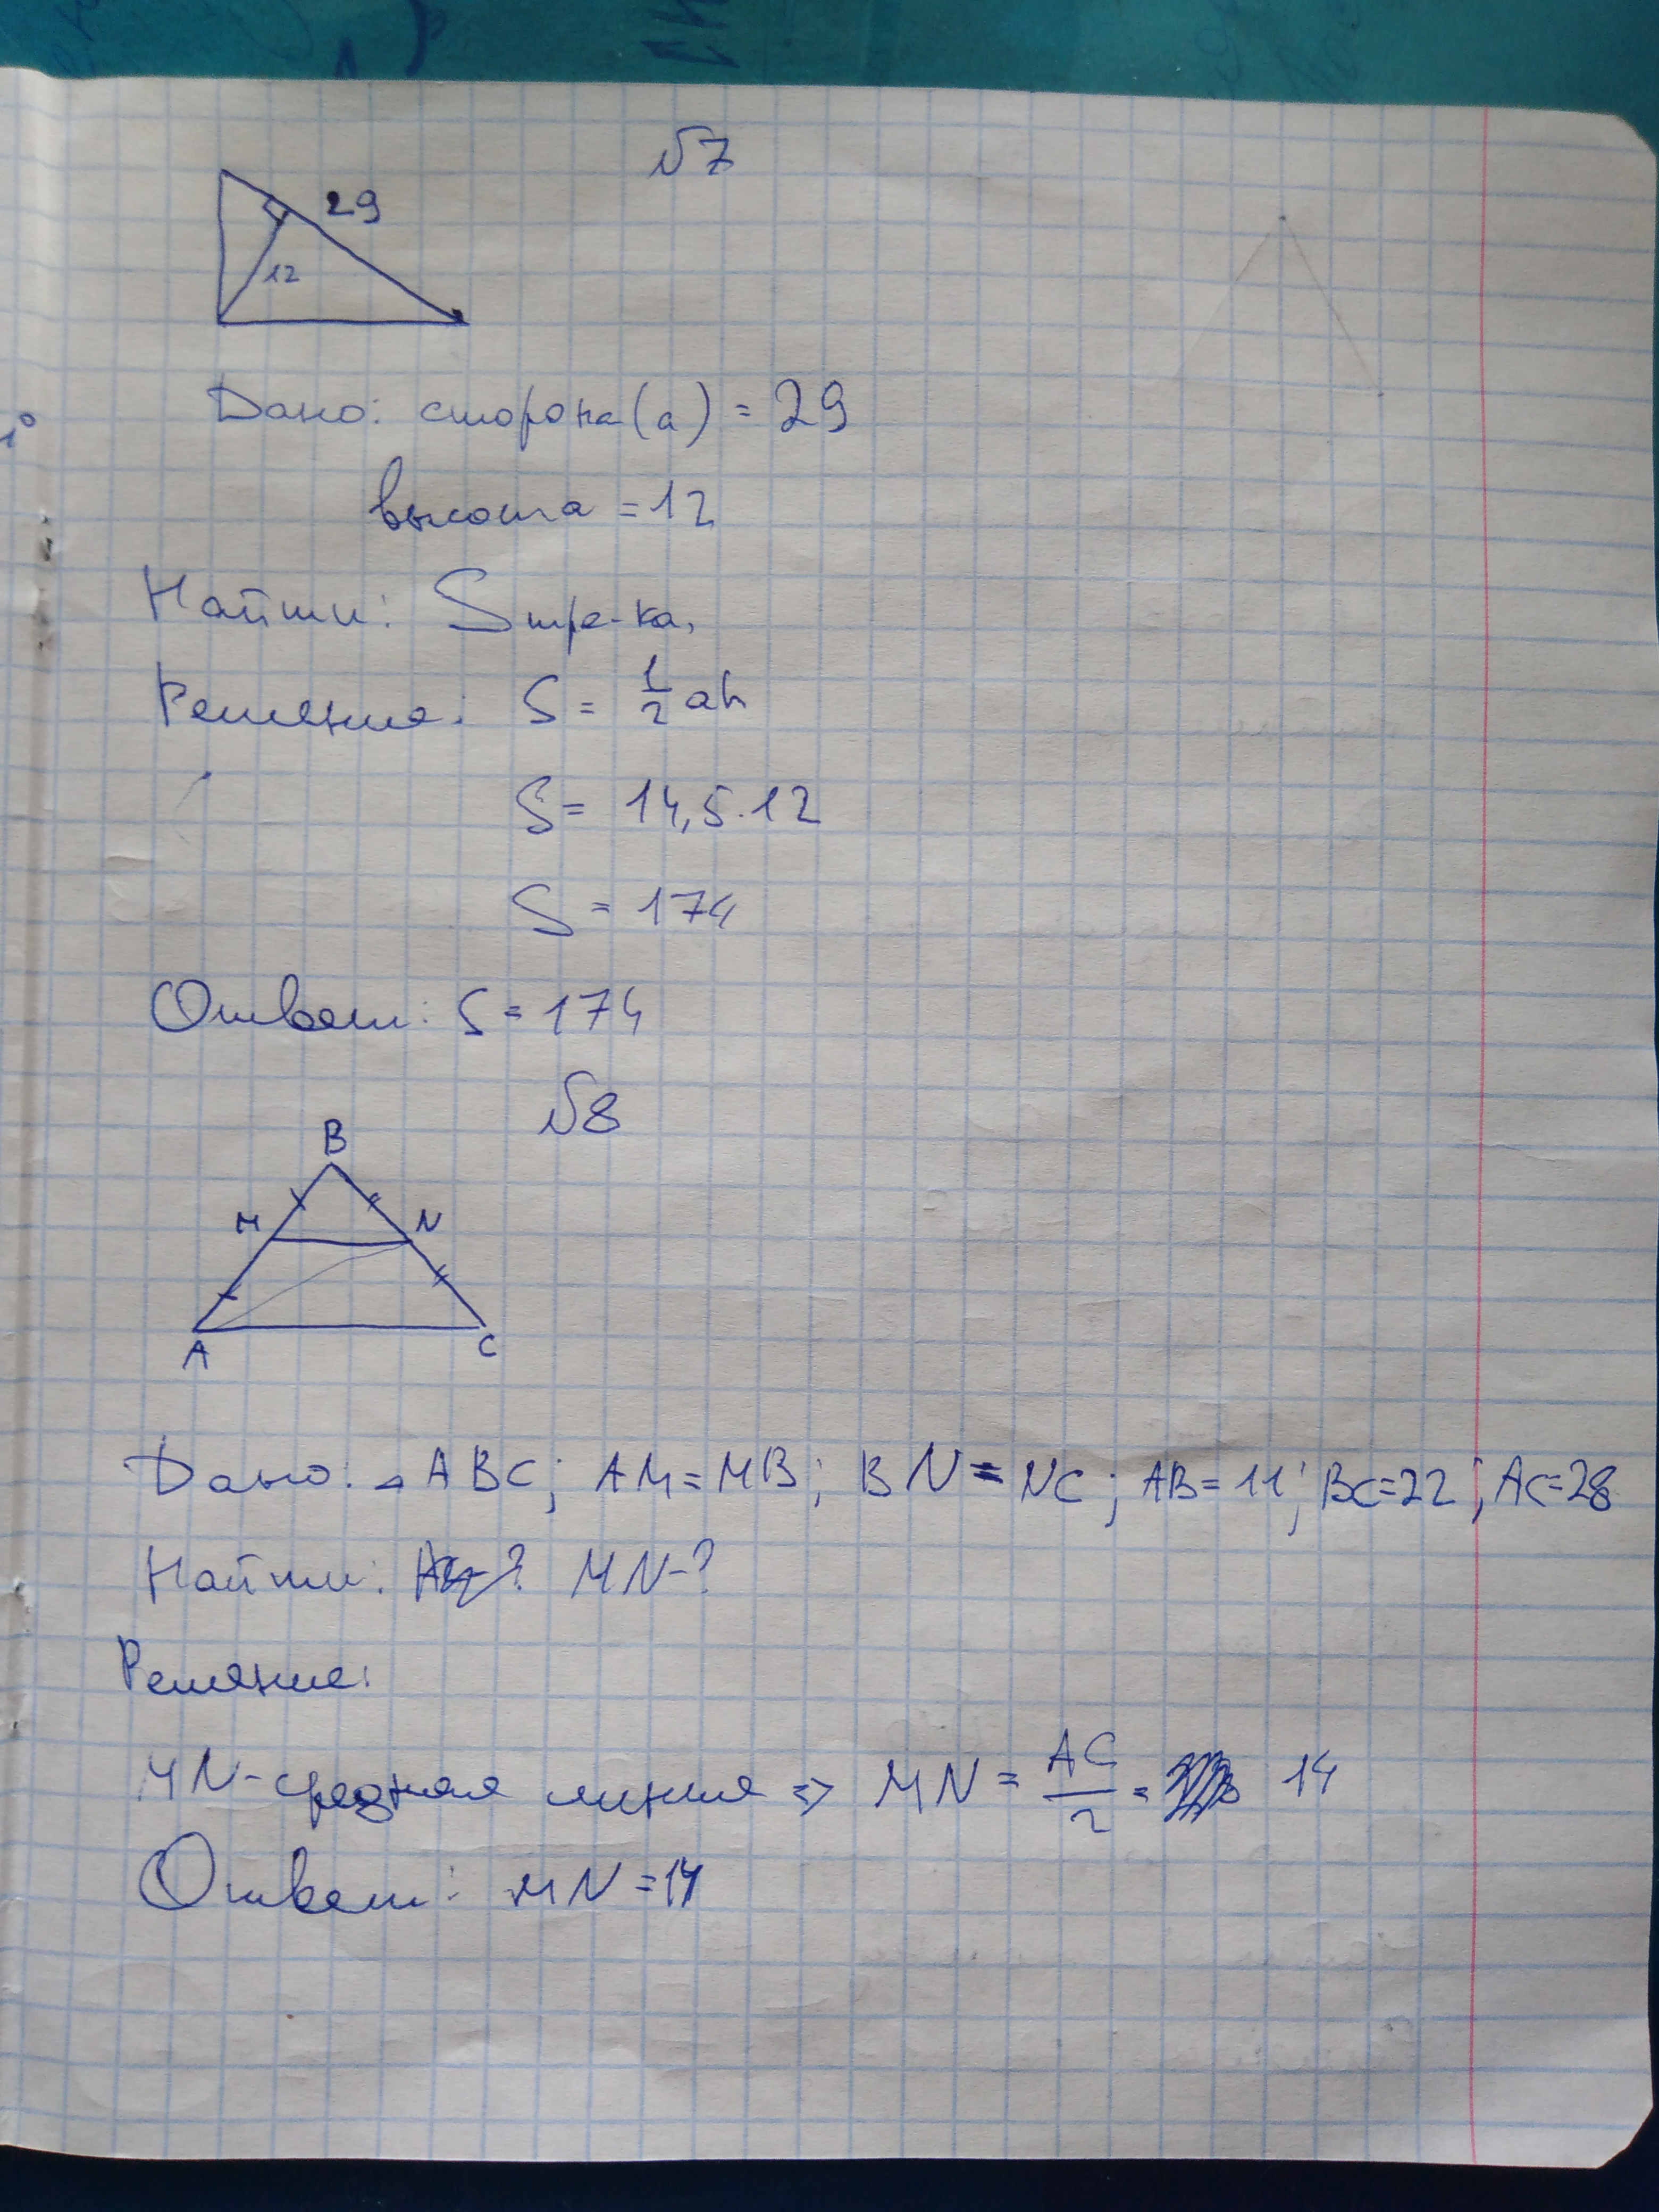 №7
29
12
Дано: сторона(a) = 29
высота = 12
Найти: Sтре-ка,
Решение: S = 1/2 ah
S = 14,5 · 12
S = 174
Ответ: S = 174
№8
B
M N
A C
Дано: △ABC; AM=MB; BN=NC; AB=11; BC=22; AC=28
Найти: MN-?
Решение:
MN-средняя линия => MN = AC/2 = 14
Ответ: MN=14